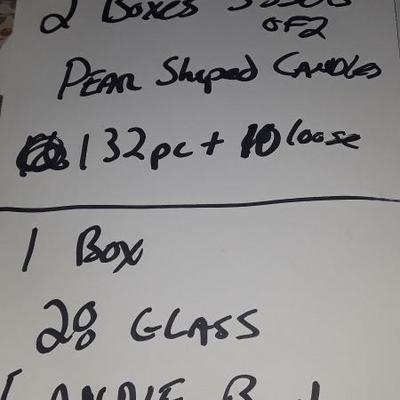 2 Boxes
OF 2
PEAR Shaped CANDLES
132 pc + 10 loose
1 Box
28 GLASS
CANDLE